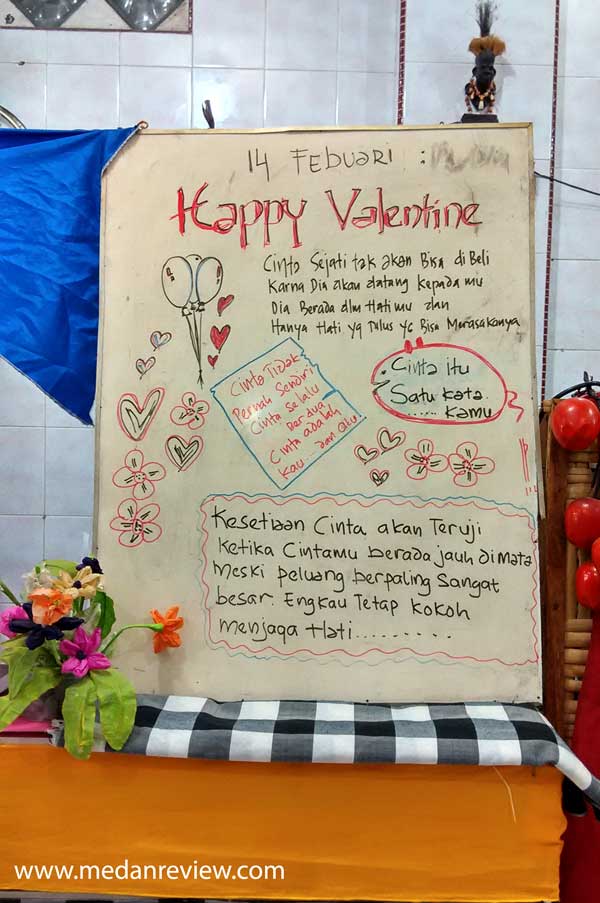 14 FEBUARI :
Happy Valentine
Cinta Sejati tak akan Bisa di Beli
Karna Dia akan datang kepada mu
Dia Berada dlm Hati mu dan
Hanya Hati yg Tulus yg Bisa Merasakanya
Cinta Tidak
Pernah Sendiri
Cinta selalu
Berdua
Cinta adalah
Kau... dan aku
Cinta itu
Satu kata.
...... kamu
Kesetiaan Cinta akan Teruji
Ketika Cintamu berada jauh di mata
Meski peluang berpaling Sangat
besar. Engkau Tetap kokoh
menjaga Hati.........
www.medanreview.com